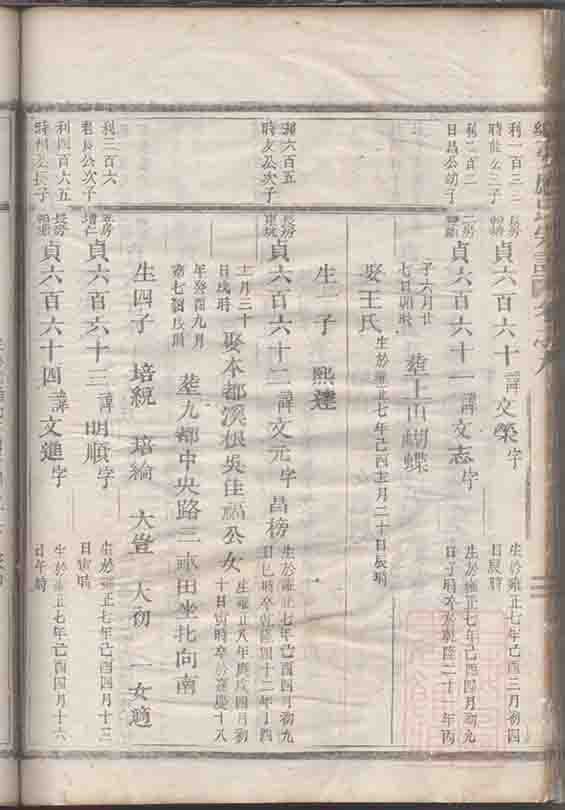 利一百三
時能公三子
長房
貞六百六十 諱文榮字
生於雍正七年己酉三月初四
日辰時
利二百二
日昌公幼子
二房
貞六百六十一 諱文志字
生於雍正七年己酉四月初九
日丁時卒於乾隆二十一年丙
子六月廿
七日卯時
葬上山蝴蝶
娶王氏
生於雍正七年己酉十二月二十日辰時
生一子 熙達
利六百五
時友公次子
長房
貞六百六十二 諱文元字 昌榜
生於雍正七年己酉四月初九
日巳時卒乾隆四十二年丁酉
十二月二十
日戌時
娶本都溪根吳佳福公女
生雍正八年庚戌四月初
十日寅時卒於嘉慶十八
年癸酉九月
初七酉辰時
葬九都中央路三畝田坐北向南
生四子 培統 培綸 大豈 大初 一女適
利三百六
長公次子
貞六百六十三 諱明順字
生於雍正七年己酉四月十三
日寅時
利四百六五
時相公長子
長房
貞六百六十四 諱文進字
生於雍正七年己酉四月十六
日午時